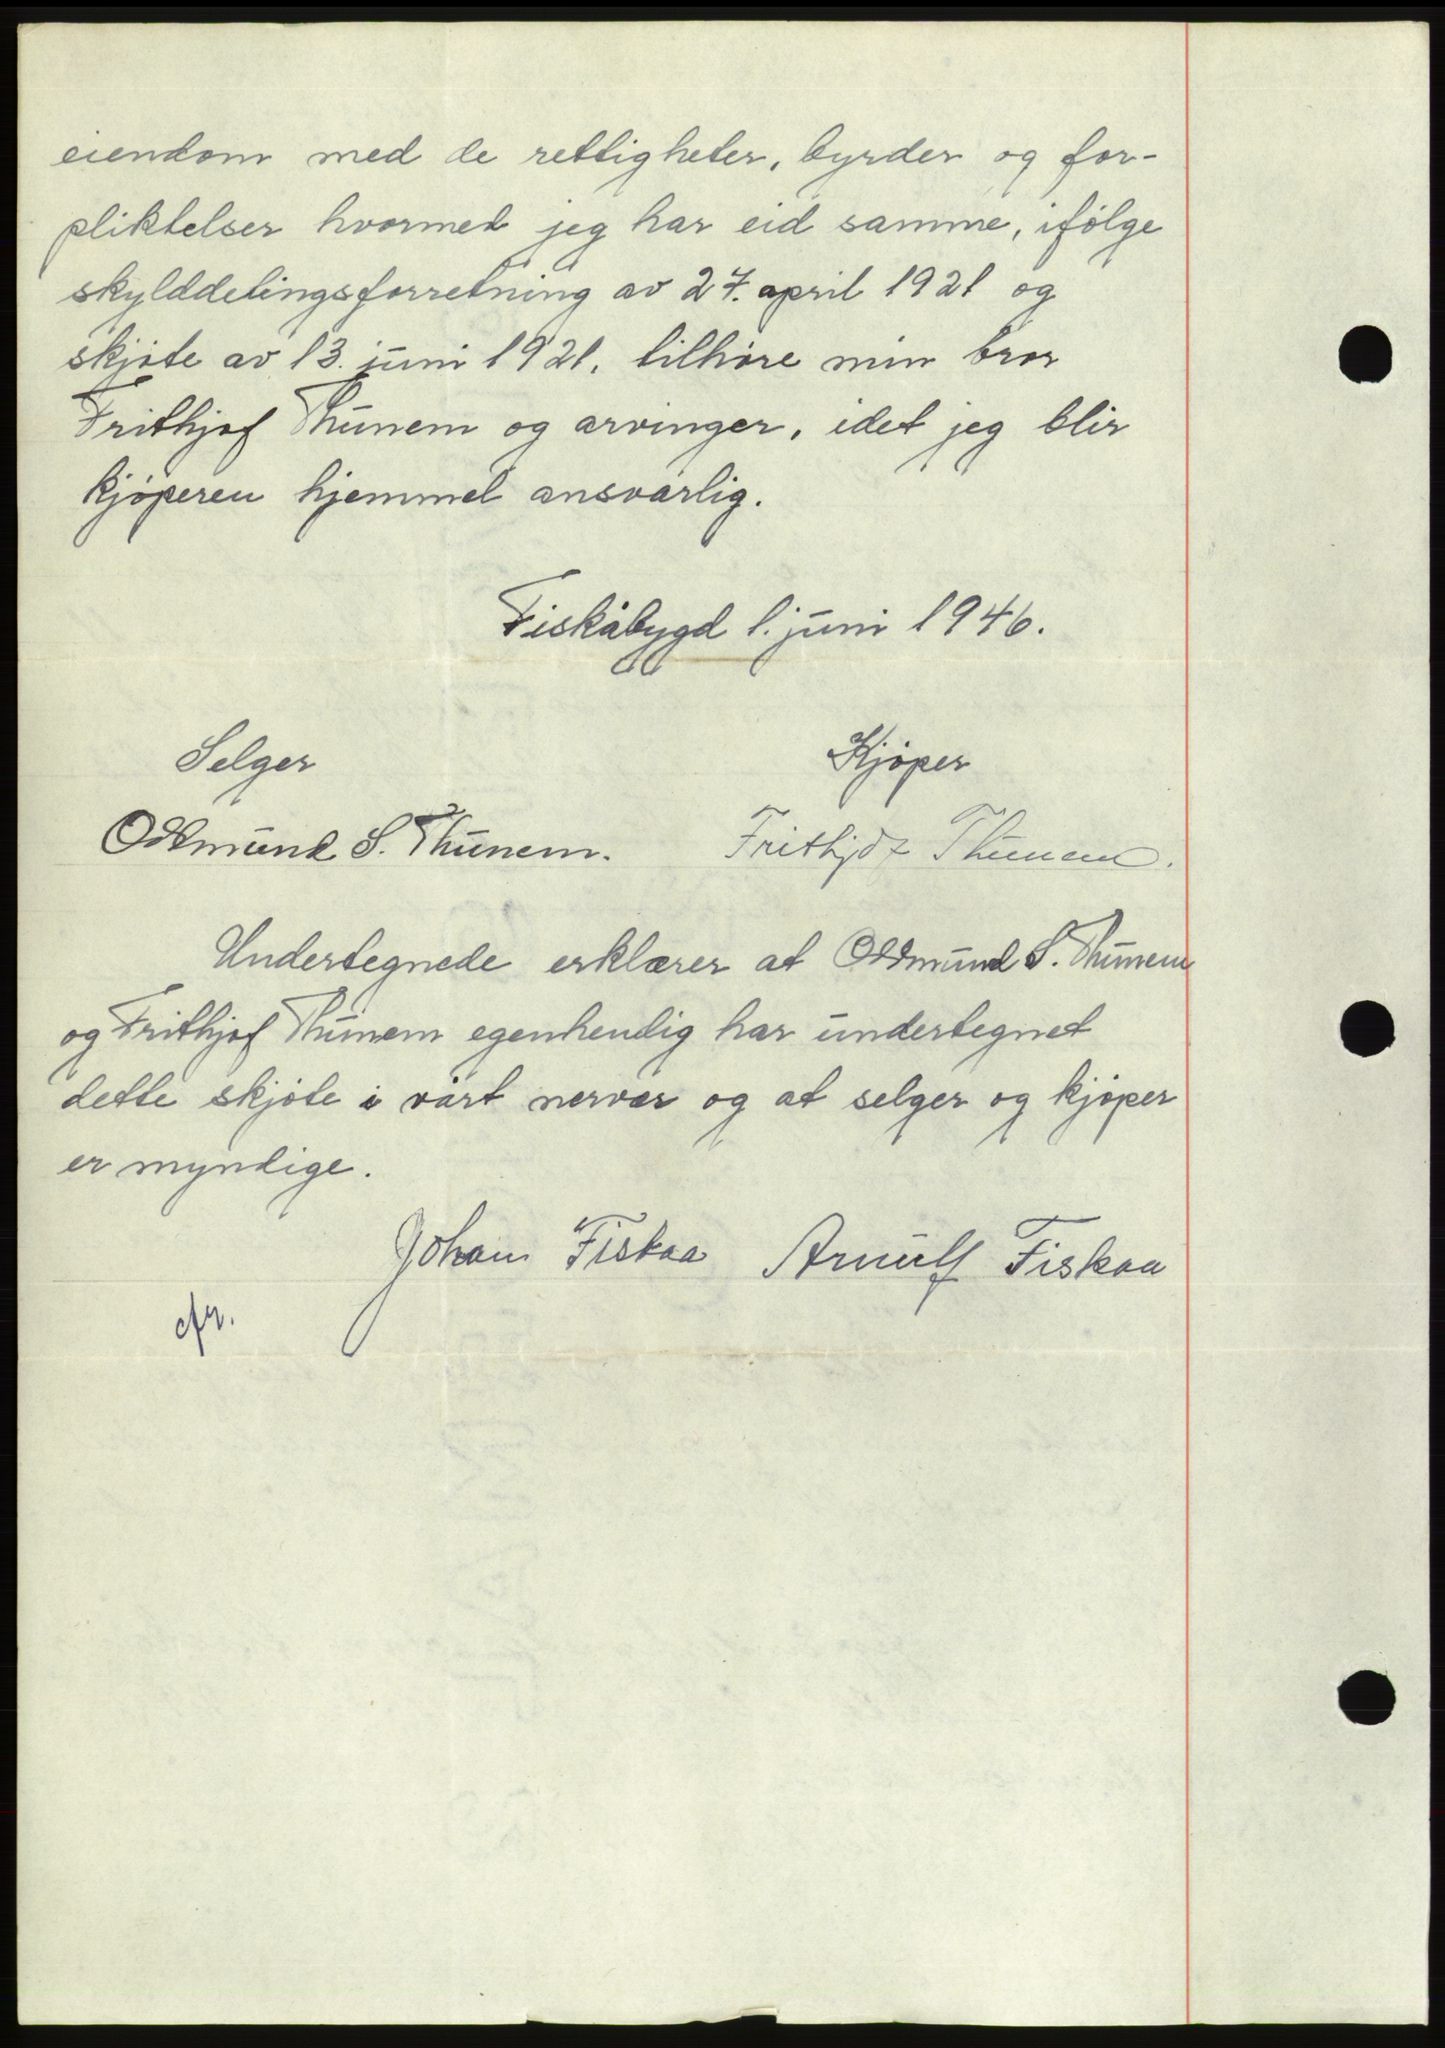 eiendom med de rettigheter, byrder og for-
pliktelser hvormed jeg har eid samme, ifølge
skylddelingsforretning av 27. april 1921 og
skjøte av 13. juni 1921, tilhøre min bror
Frithjof Thunem og arvinger, idet jeg blir
kjøperen hjemmel ansvarlig.
Fiskåbygd 1. juni 1946.
Selger Kjøper
Oddmund S. Thunem. Frithjof Thunem.
Undertegnede erklærer at Oddmund S. Thunem
og Frithjof Thunem egenhendig har undertegnet
dette skjøte i vårt nervær og at selger og kjøper
er myndige.
Johan Fiskaa Arnulf Fiskaa
cfr.